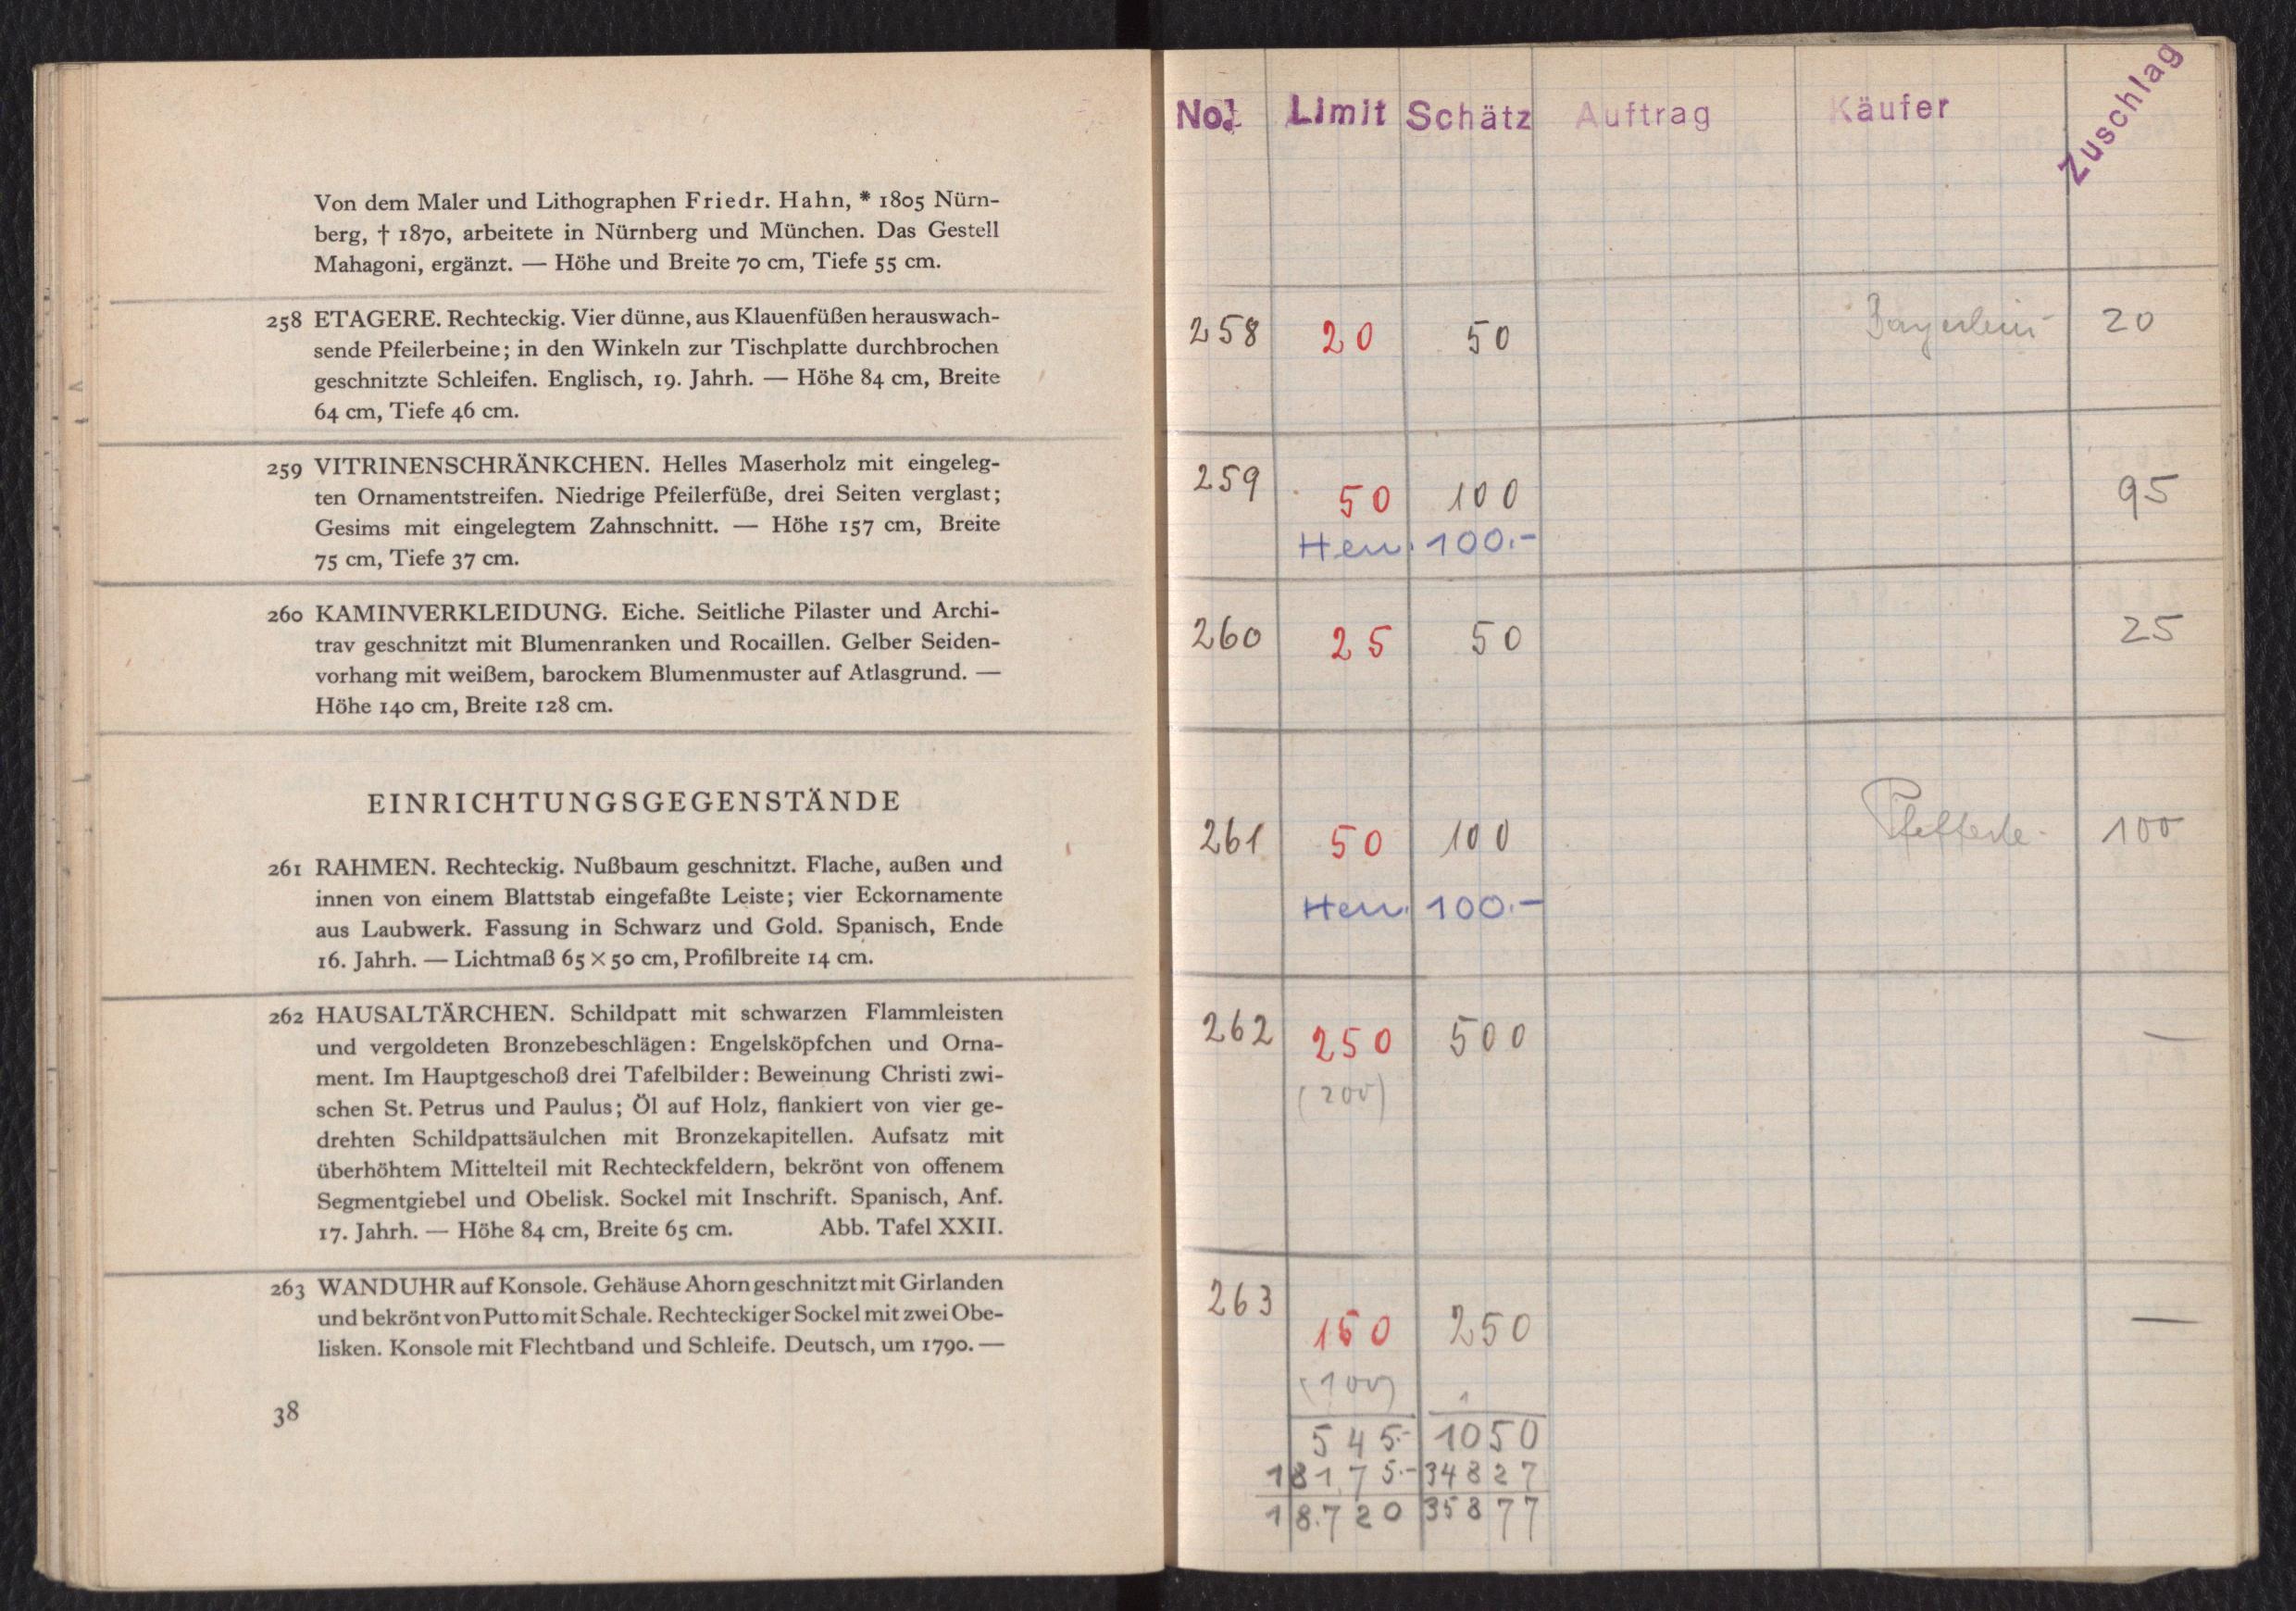 Von dem Maler und Lithographen Friedr. Hahn, * 1805 Nürn-
berg, † 1870, arbeitete in Nürnberg und München. Das Gestell
Mahagoni, ergänzt. — Höhe und Breite 70 cm, Tiefe 55 cm.
258 ETAGERE. Rechteckig. Vier dünne, aus Klauenfüßen herauswach-
sende Pfeilerbeine; in den Winkeln zur Tischplatte durchbrochen
geschnitzte Schleifen. Englisch, 19. Jahrh. — Höhe 84 cm, Breite
64 cm, Tiefe 46 cm.
259 VITRINENSCHRÄNKCHEN. Helles Maserholz mit eingeleg-
ten Ornamentstreifen. Niedrige Pfeilerfüße, drei Seiten verglast;
Gesims mit eingelegtem Zahnschnitt. — Höhe 157 cm, Breite
75 cm, Tiefe 37 cm.
260 KAMINVERKLEIDUNG. Eiche. Seitliche Pilaster und Archi-
trav geschnitzt mit Blumenranken und Rocaillen. Gelber Seiden-
vorhang mit weißem, barockem Blumenmuster auf Atlasgrund. —
Höhe 140 cm, Breite 128 cm.
EINRICHTUNGSGEGENSTÄNDE
261 RAHMEN. Rechteckig. Nußbaum geschnitzt. Flache, außen und
innen von einem Blattstab eingefaßte Leiste; vier Eckornamente
aus Laubwerk. Fassung in Schwarz und Gold. Spanisch, Ende
16. Jahrh. — Lichtmaß 65 × 50 cm, Profilbreite 14 cm.
262 HAUSALTÄRCHEN. Schildpatt mit schwarzen Flammleisten
und vergoldeten Bronzebeschlägen: Engelsköpfchen und Orna-
ment. Im Hauptgeschoß drei Tafelbilder: Beweinung Christi zwi-
schen St. Petrus und Paulus; Öl auf Holz, flankiert von vier ge-
drehten Schildpattsäulchen mit Bronzekapitellen. Aufsatz mit
überhöhtem Mittelteil mit Rechteckfeldern, bekrönt von offenem
Segmentgiebel und Obelisk. Sockel mit Inschrift. Spanisch, Anf.
17. Jahrh. — Höhe 84 cm, Breite 65 cm. Abb. Tafel XXII.
263 WANDUHR auf Konsole. Gehäuse Ahorn geschnitzt mit Girlanden
und bekrönt von Putto mit Schale. Rechteckiger Sockel mit zwei Obe-
lisken. Konsole mit Flechtband und Schleife. Deutsch, um 1790. —
38
No. Limit Schätz Auftrag Käufer Zuschlag
258 20 50 Bayerlein 20
259 50 100 95
Hen. 100.-
260 25 50 25
261 50 100 100
Hen. 100.-
262 250 500 —
(200)
263 150 250 —
(100)
1
545.- 1050
18175.- 34827
18.720 35877